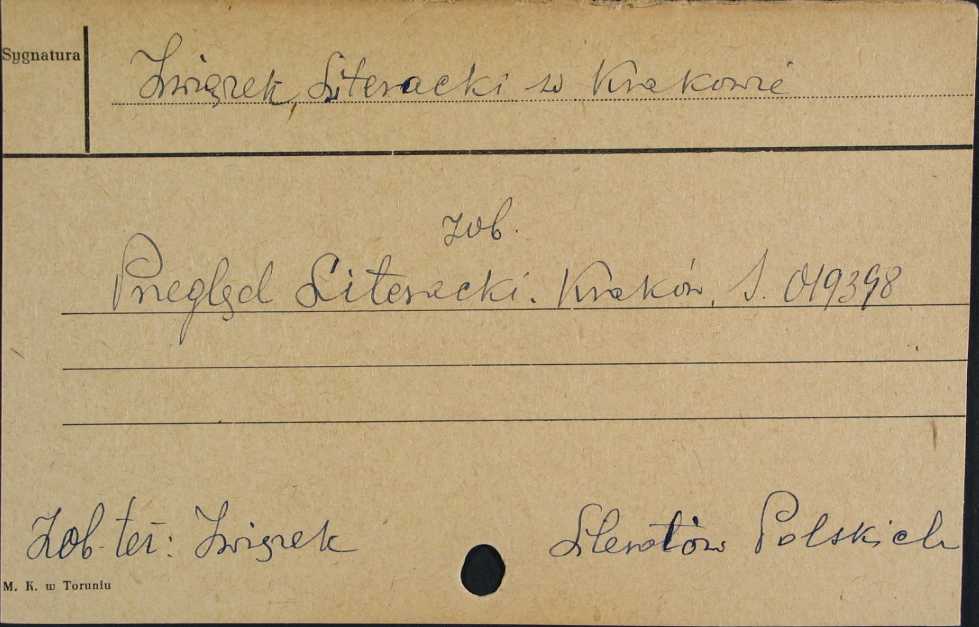 Sygnatura
Związek Literacki w Krakowie
zob.
Przegląd Literacki. Kraków. S. 019398
Zob. też: Związek Literatów Polskich
M. K. w Toruniu